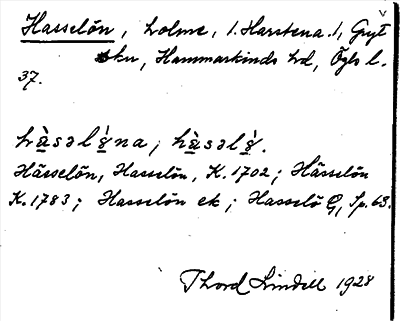 Hasselön, holme, i. Harstena. l, Gryt
sku, Hammarkinds hd, Ögls l.
37.
hàsəlø̀na; hàsəlø̀.
Hässelön, Hasselön, K. 1702; Hässelön
K. 1783; Hasselön ek; Hasselö G, Sp. 63.
Thord Lindell 1928